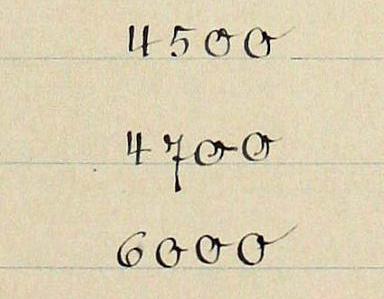 4500
4700
6000